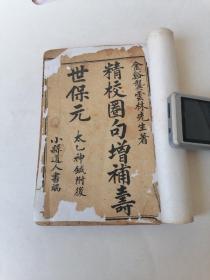 金谿龔雲林先生著
精校圈句增補壽
世保元
太乙神鍼附後
小綠道人書耑